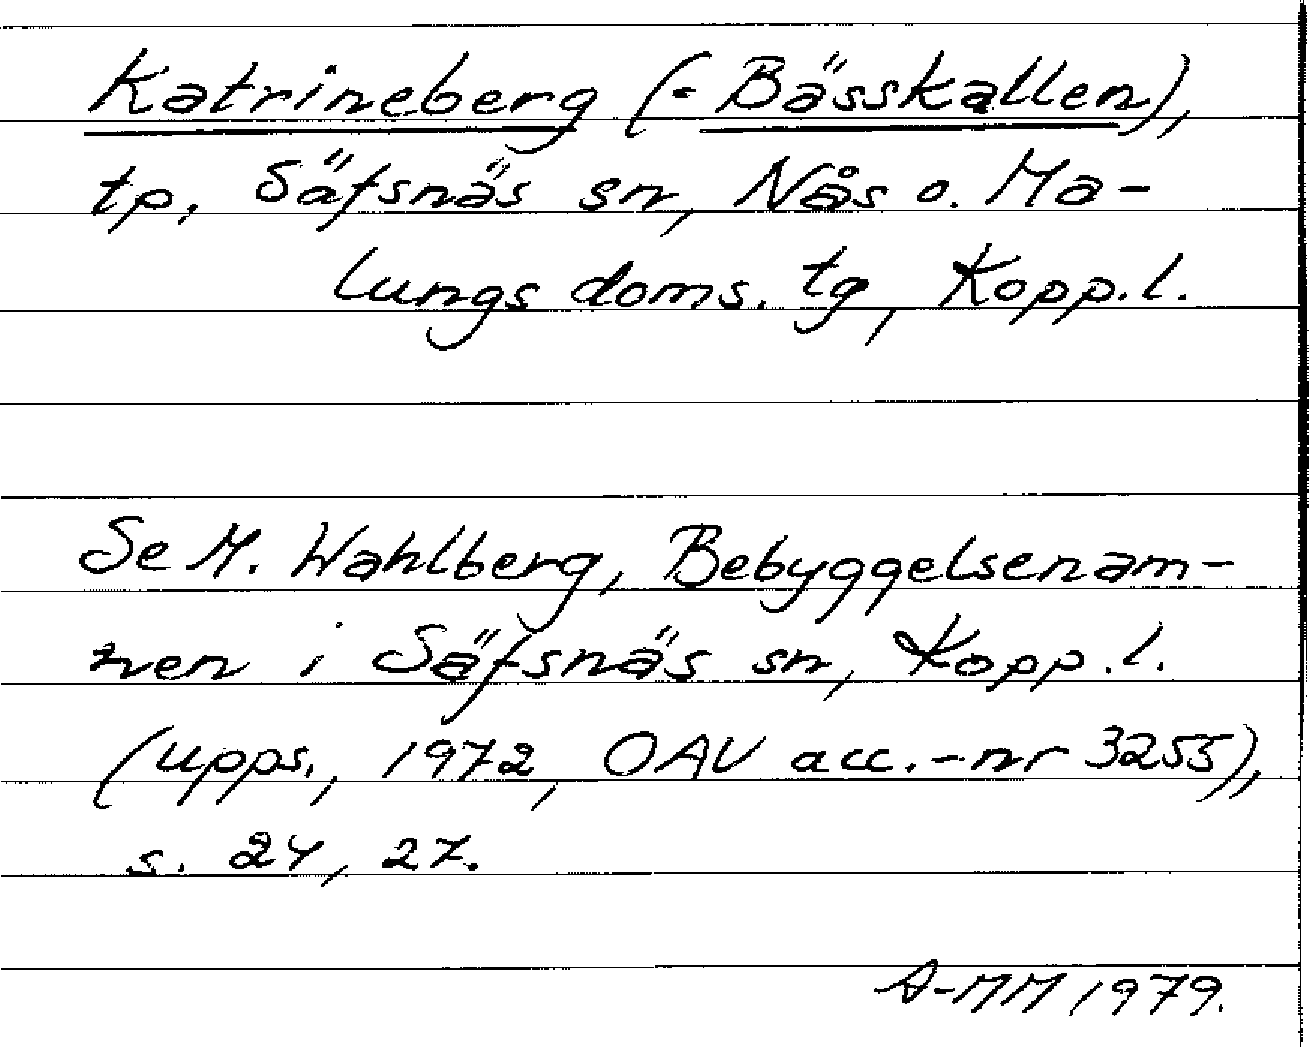 Katrineberg (= Bässkallen),
tp, Säfsnäs sn, Nås o. Ma-
lungs doms. tg, Kopp.l.
Se M. Wahlberg, Bebyggelsenam-
nen i Säfsnäs sn, Kopp.l.
(upps., 1972, OAU acc.-nr 3255),
s. 24, 27.
A-MM 1979.